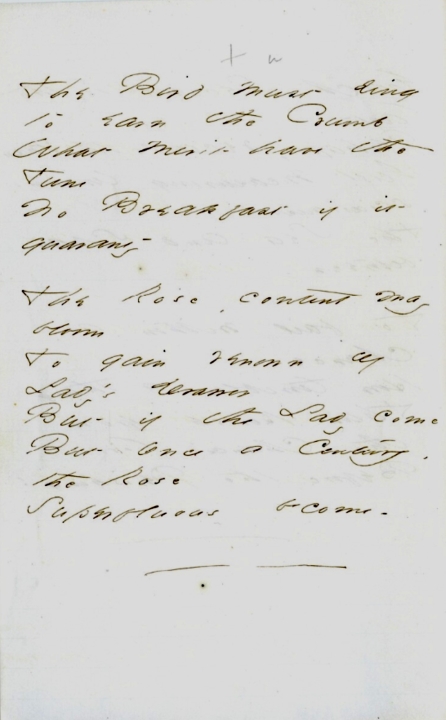 + w
The Bird must sing
to earn the Crumb
What merit have the
Tune
No Breakfast if it
guaranty
The Rose, content may
bloom
To gain renown of
Lady's drawer
But if the Lady come
But once a Century,
the Rose
Superfluous become -